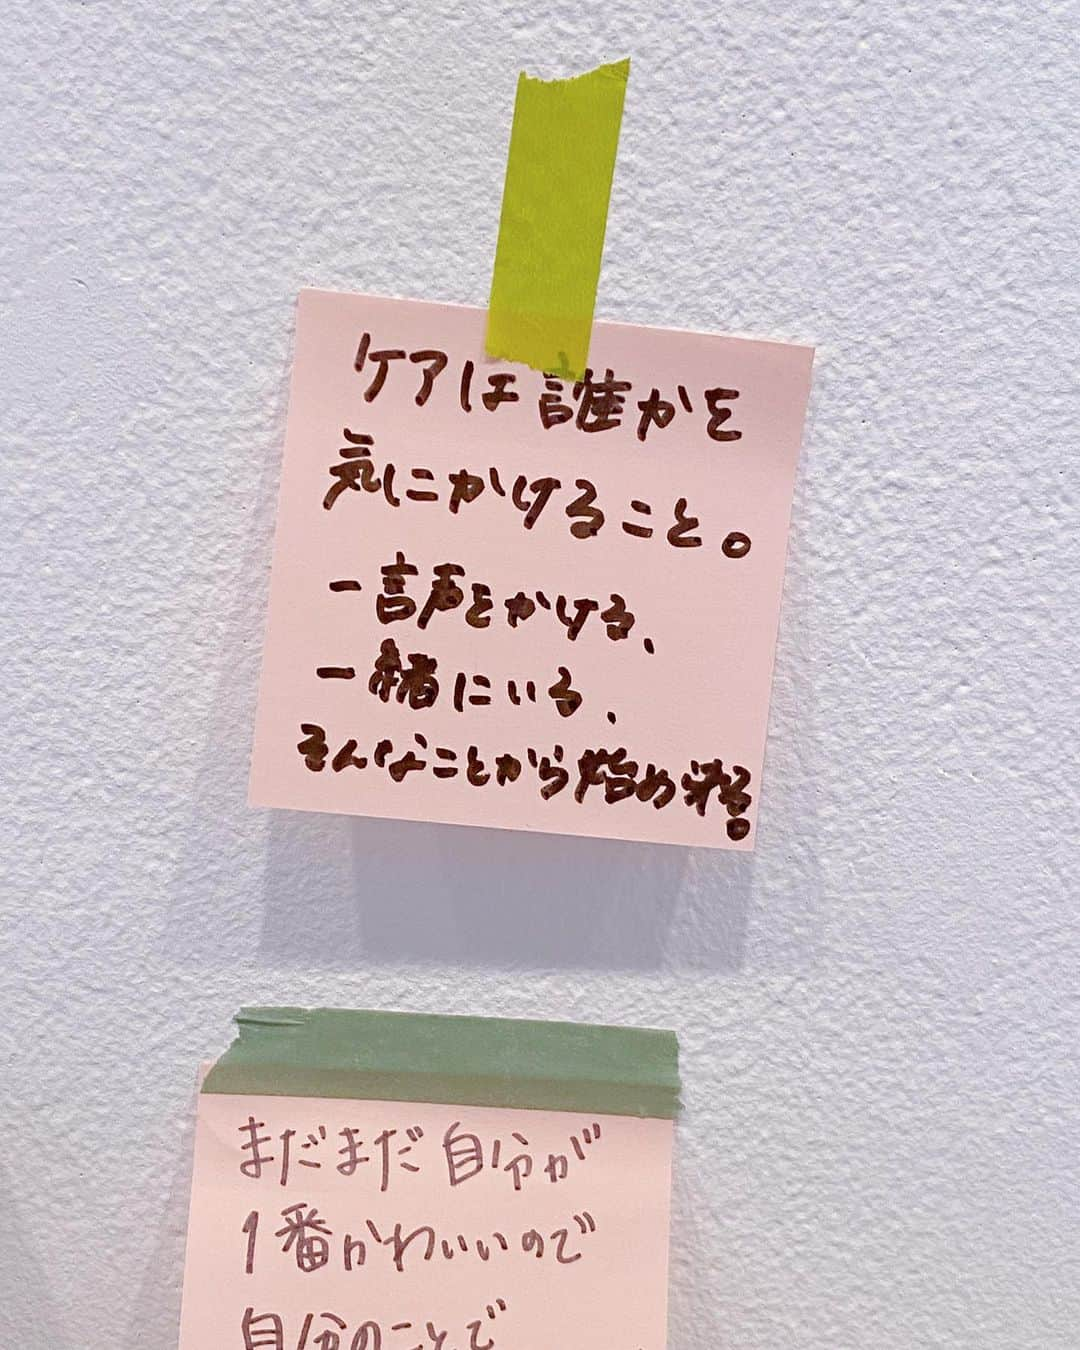 ケアは誰かを
気にかけること。
一言声をかける、
一緒にいる、
そんなことから始める。
まだまだ自分が
1番かわいいので
自分のことで